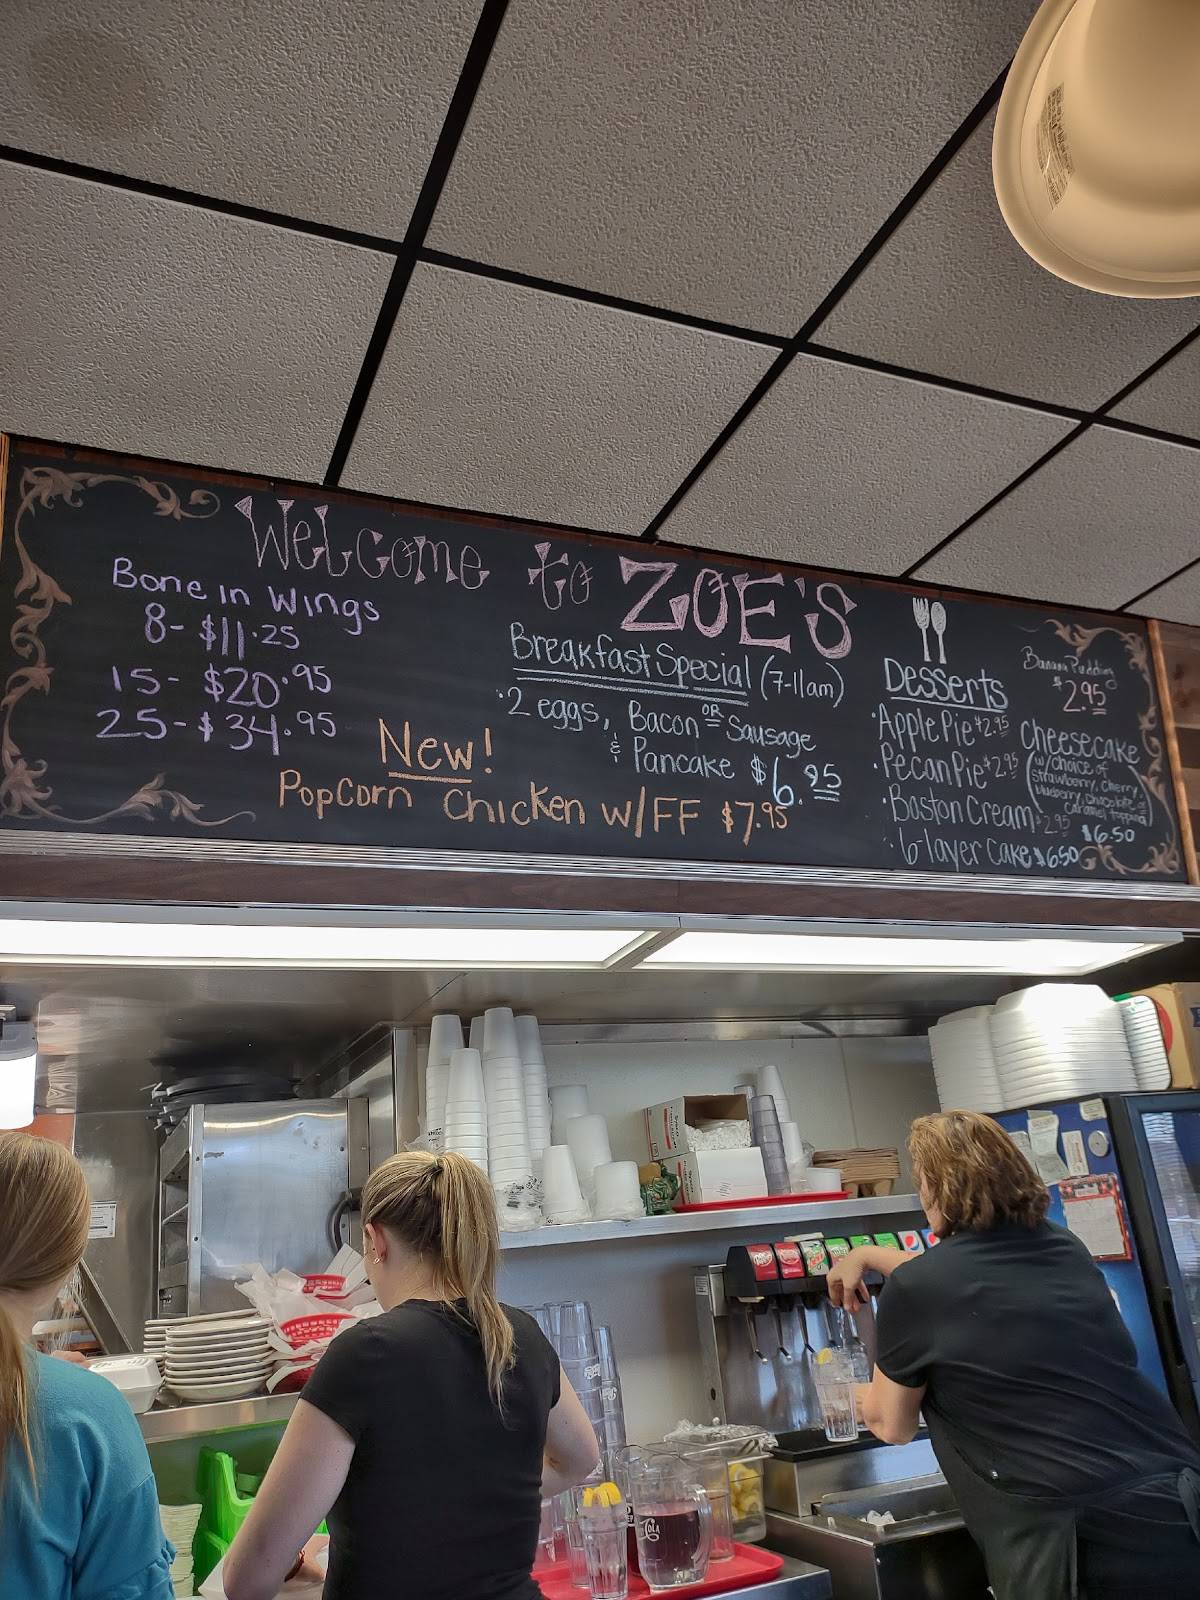 Welcome to ZOE'S
Bone in Wings
8- $11.25
15- $20.95
25- $34.95
New!
PopCorn Chicken w/FF $7.95
Breakfast Special (7-11am)
·2 eggs, Bacon OR Sausage
& Pancake $6.95
Desserts
·Apple Pie $2.95
·Pecan Pie $2.95
·Boston Cream $2.95
·6-layer cake $6.50
Banana Pudding
$2.95
Cheesecake
(w/choice of
strawberry, Cherry,
blueberry, Chocolate, or
Caramel topping)
$6.50